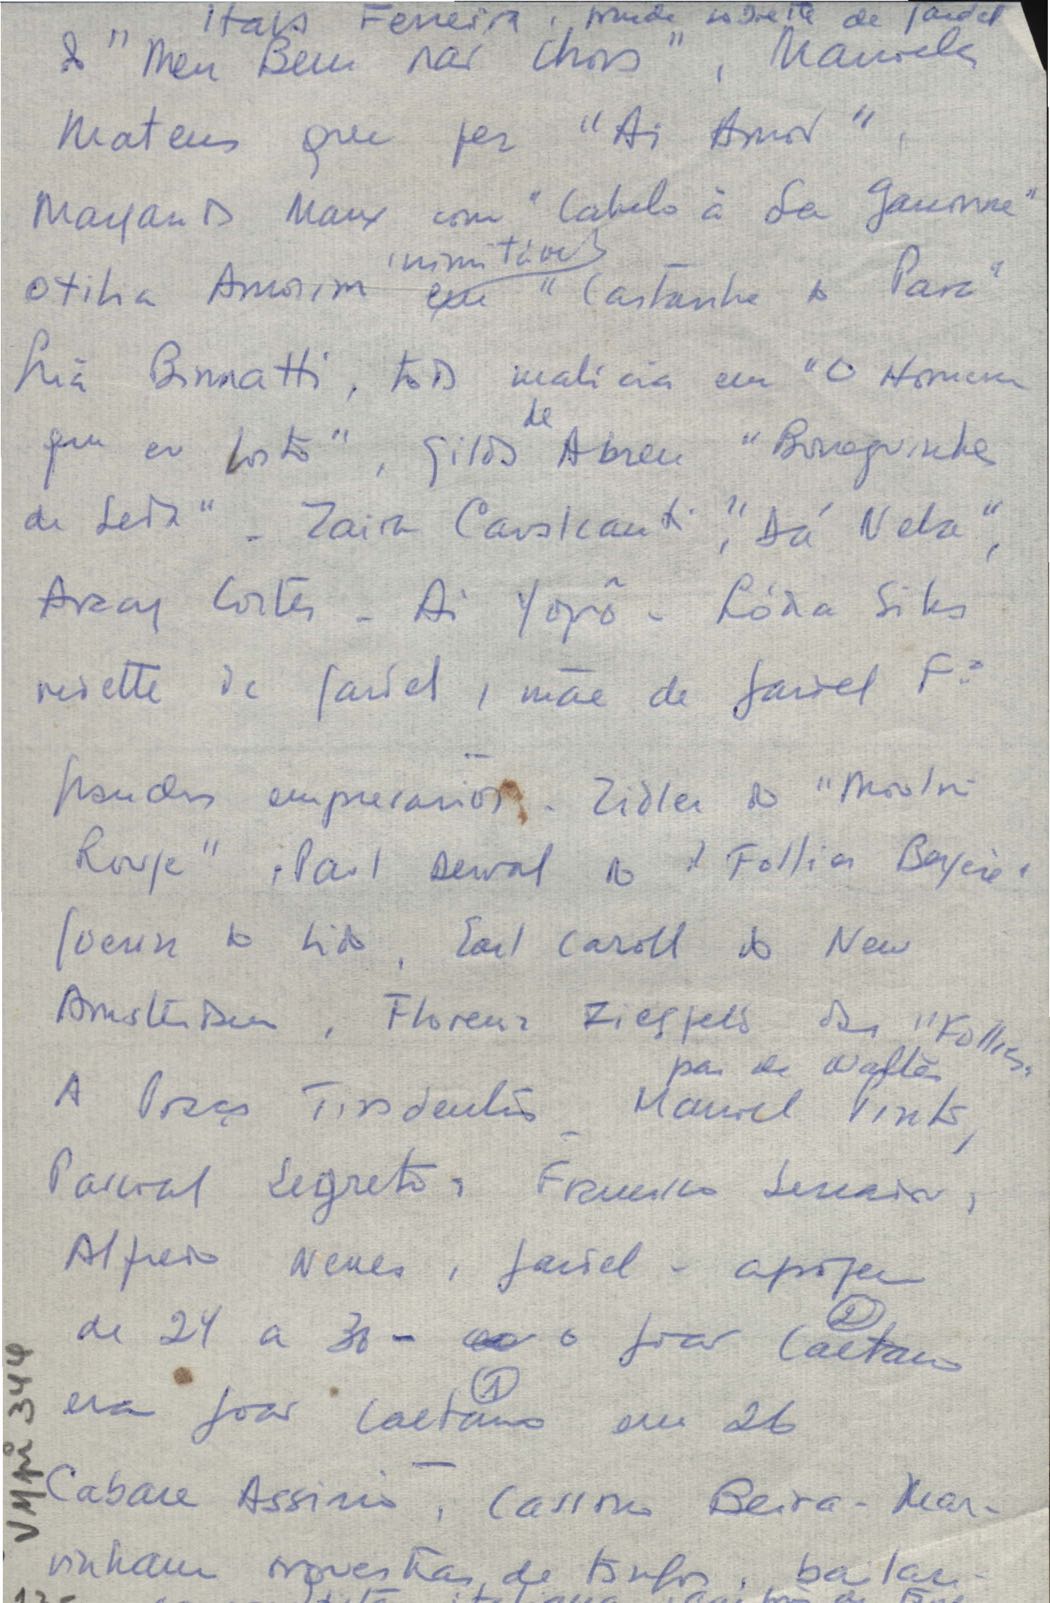 Itala Ferreira, grande vedette de Jardel
do "Meu Bem não Chora", Manuela
Mateus que fez "Ai Amor",
Margarida Max com "Cabelo à La Garconne"
inimitável
Otilia Amorim em "Castanha do Pará"
Liá Binnatti, toda malicia em "O Homem
de
que eu Gosto", Gilda Abreu "Borreguinhas
de Seda" - Zaira Cavalcanti, "Dá Nela",
Aracy Cortes - Ai Yoyô - Lódia Silva
vedette de Jardel, mãe de Jardel Fº
Grandes empresarios - Zidler do "Moulin
Rouge", Paul Derval do "Follies Bergère"
Guerin do Lido, Earl Caroll do New
Amsterdam, Florenz Ziegfeld das "Follies"
pai de Walter
A Praça Tiradentes - Manoel Pinto,
Pascoal Segreto, Francisco Serrador,
Alfredo Neves, Jardel - apogeu
2
de 24 a 30 - o João Caetano
1
era João Caetano em 26
Cabare Assirio, Cassino Beira-Mar -
vinham orquestras de tangos, bailari-
VMpi 344